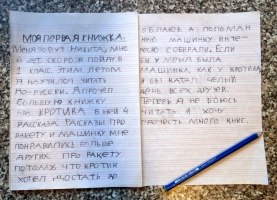 МОЯ ПЕРВАЯ КНИЖКА.
МЕНЯ ЗОВУТ НИКИТА, МНЕ
6 ЛЕТ. СКОРО Я ПОЙДУ В
1 КЛАСС. ЭТИМ ЛЕТОМ
Я НАУЧИЛСЯ ЧИТАТЬ
ПО-РУССКИ. Я ПРОЧЁЛ
БОЛЬШУЮ КНИЖКУ
ПРО КРОТИКА. В НЕЙ 4
РАССКАЗА. РАССКАЗЫ ПРО
РАКЕТУ И МАШИНКУ МНЕ
ПОНРАВИЛИСЬ БОЛЬШЕ
ДРУГИХ. ПРО РАКЕТУ
ПОТОМУ, ЧТО КРОТИК
ХОТЕЛ ДОСТАТЬ ДО
ОБЛАКОВ. А
НУЮ МАШИНКУ ИНТЕ-
РЕСНО СОБИРАЛИ. ЕСЛИ
БЫ У МЕНЯ БЫЛА
МАШИНКА, КАК У КРОТИКА,
Я БЫ КАТАЛ ЦЕЛЫЙ
ДЕНЬ ВСЕХ ДРУЗЕЙ.
ТЕПЕРЬ Я НЕ БОЮСЬ
ЧИТАТЬ И ХОЧУ
ПРОЧЕСТЬ МНОГО КНИГ.